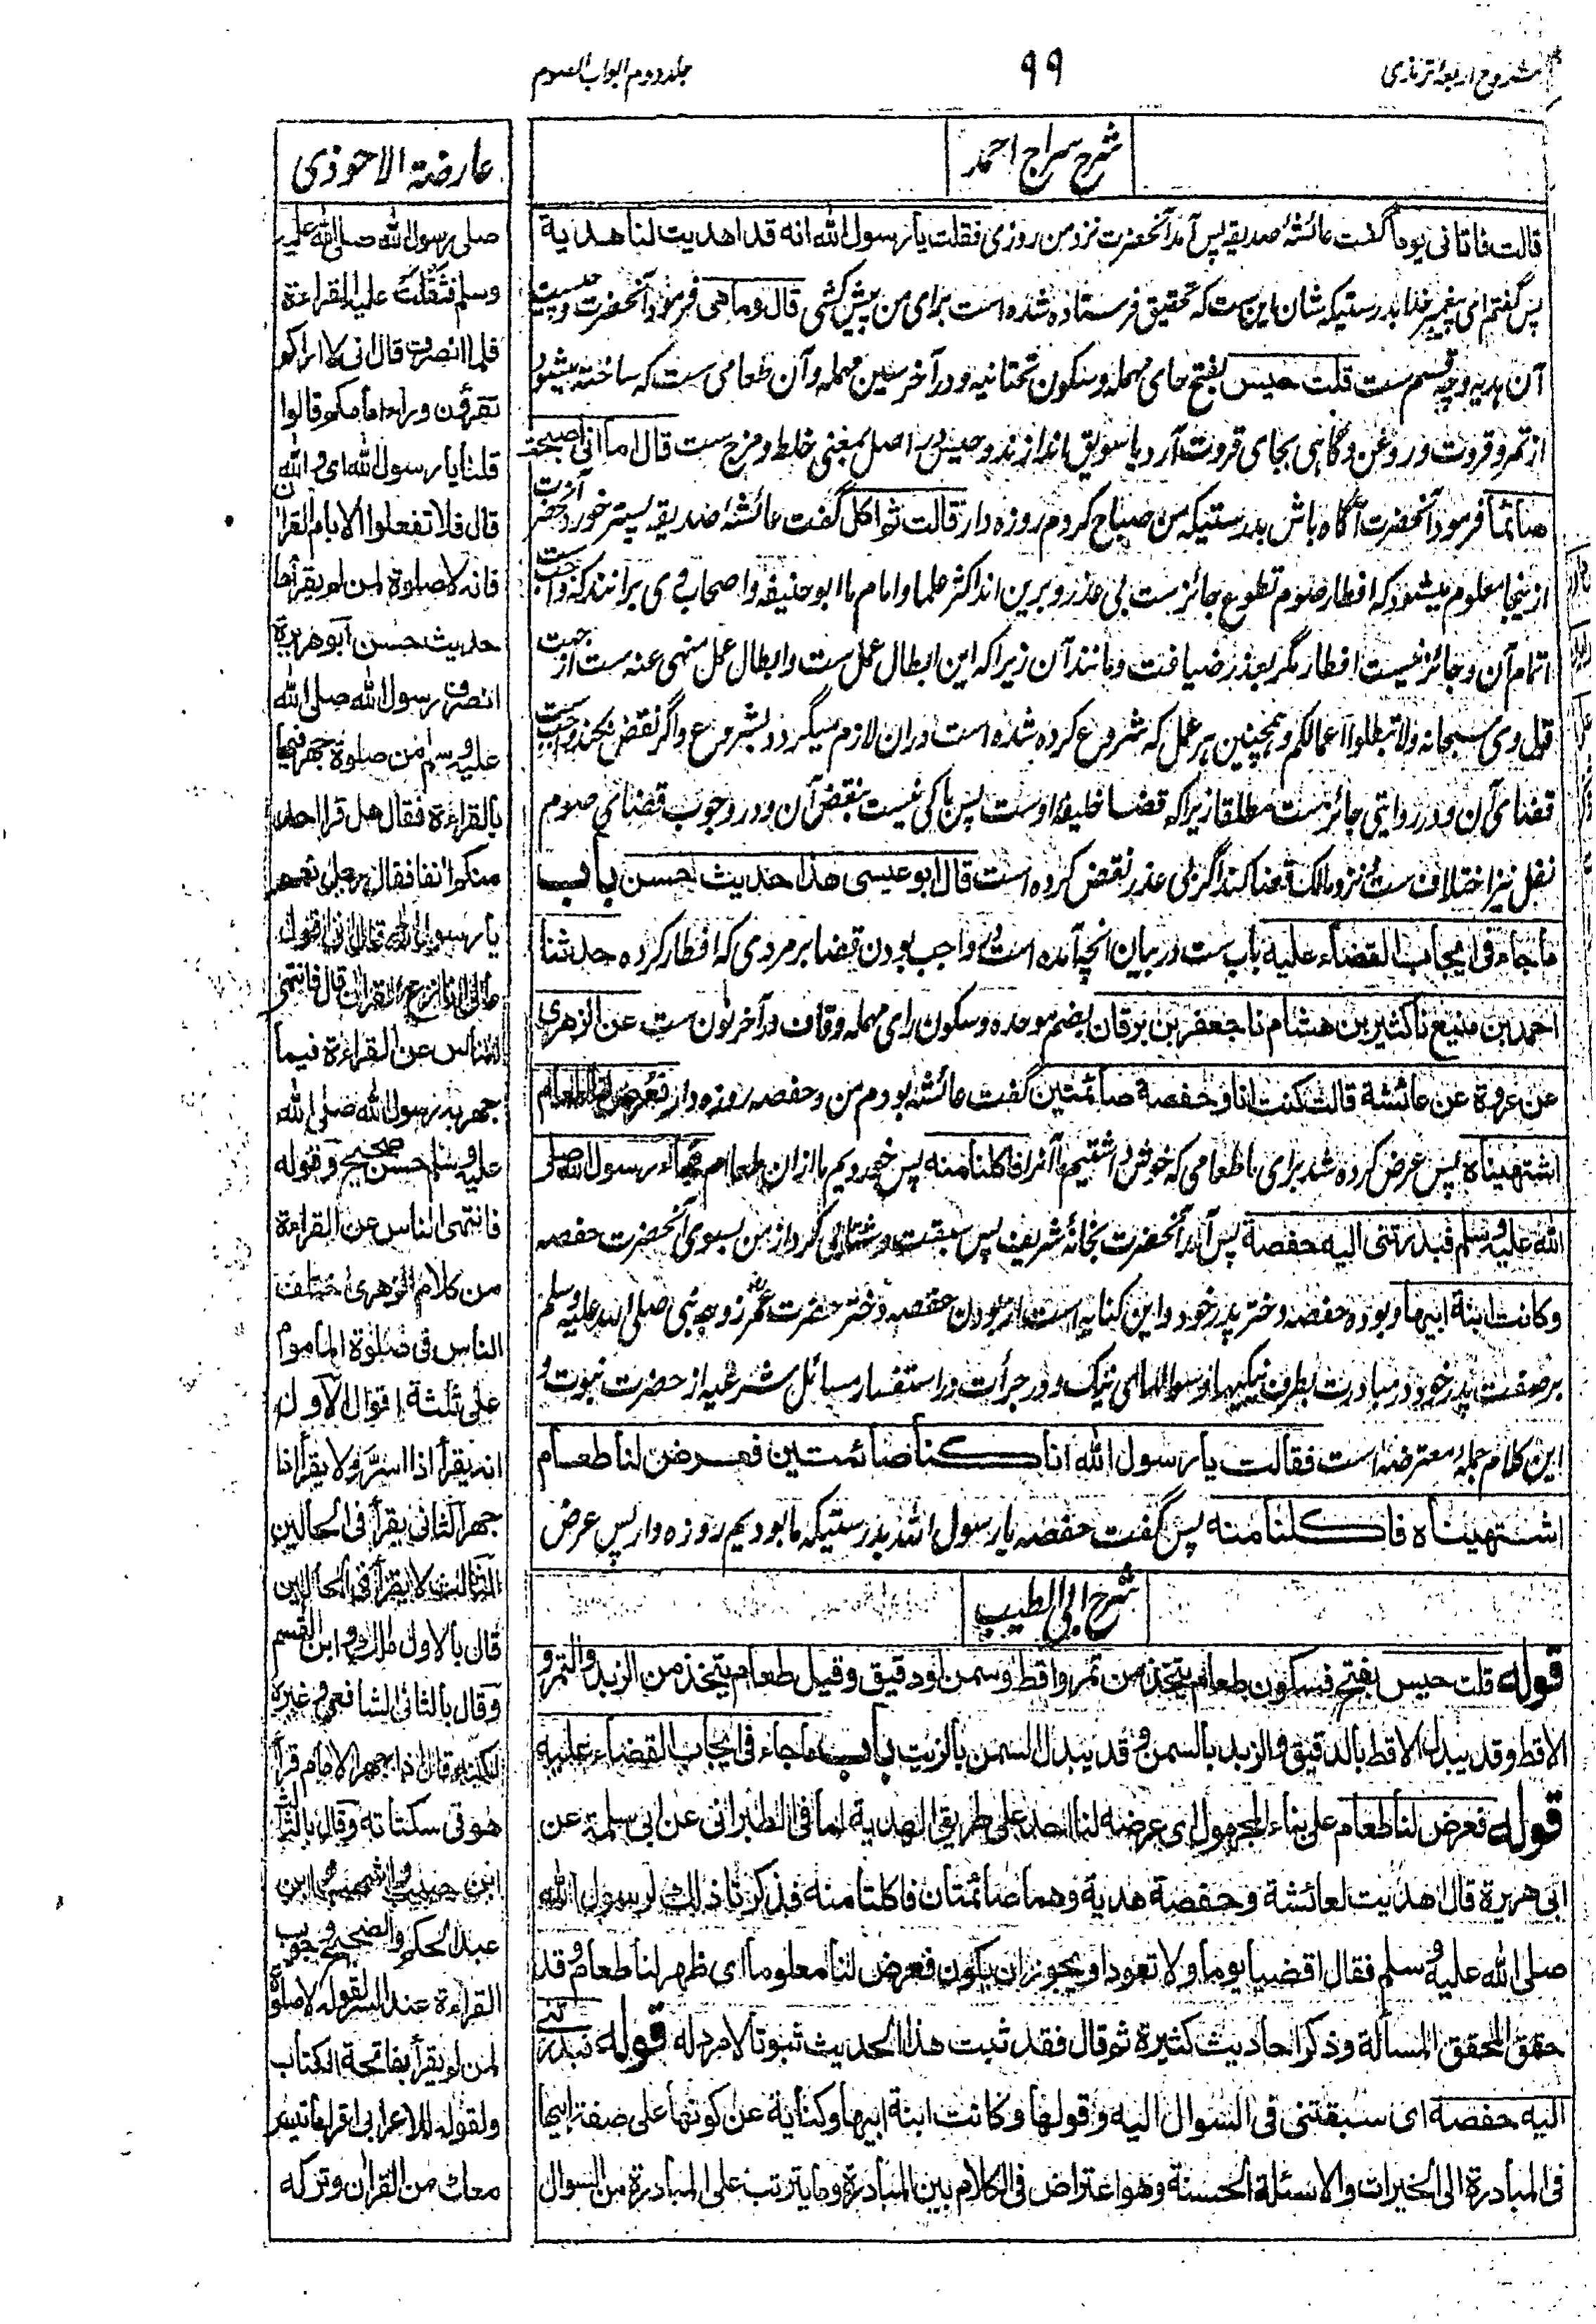 شروح اربعۂ ترمذی
۹۹
جلد دوم ابواب الصوم
شرح سراج احمد
قالت فاتانی یوما گفت عائشۂ صدیقه پس آمد آنحضرت نزد من روزی فقلت یا رسول الله انه قد اهدیت لنا هدیة
پس گفتم ای پیغمبر خدا بدرستیکه شان این ست که تحقیق فرستاده شده است برای من پیش کشی قال وما هی فرمود آنحضرت و چیست
آن هدیه وچه قسم ست قلت حیس بفتح حای مهمله وسکون تحتانیه ودر آخر سین مهمله وآن طعامی ست که ساخته میشود
از تمر و قروت و روغن وگاهی بجای قروت آرد یا سویق اندازند وحیس در اصل بمعنی خلط ومزج ست قال اما انی اصبحت
صائما فرمود آنحضرت آگاه باش بدرستیکه من صباح کردم روزه دار قالت ثم اکل گفت عائشۂ صدیقه پستر خورد آنحضرت
ازینجا معلوم میشود که افطار صوم تطوع جائز ست بی عذر وبرین اند اکثر علما وامام ما ابو حنیفه واصحاب وی برانند که واجب ست
اتمام آن وجائز نیست افطار مگر بعذر ضیافت ومانند آن زیرا که این ابطال عمل ست وابطال عمل منهی عنه ست از جهت
قول وی سبحانه ولا تبطلوا اعمالکم وهمچنین هر عمل که شروع کرده شده است دران لازم میگردد بشروع واگر نقض بکند واجب ست
قضای آن ودر روایتی جائز ست مطلقا زیرا که قضا خلیفۂ اوست پس باکی نیست بنقض آن ودر وجوب قضای صوم
نفل نیز اختلاف ست ونزد مالک قضا کند اگر بی عذر نقض کرده است قال ابو عیسی هذا حدیث حسن باب
ما جاء فی ایجاب القضاء علیه باب ست در بیان آنچه آمده است در واجب بودن قضا بر مردی که افطار کرده حدثنا
احمد بن منیع نا کثیر بن هشام نا جعفر بن برقان بضم موحده وسکون رای مهمله وقاف ودر آخر نون ست عن الزهری
عن عروة عن عائشة قالت کنت انا وحفصة صائمتین گفت عائشه بودم من وحفصه روزه دار فعرض لنا طعام
اشتهیناه پس عرض کرده شد برای ما طعامی که خوش داشتیم ما آنرا فاکلنا منه پس خوردیم ما ازان طعام فجاء رسول الله صلی
الله علیه وسلم فبدرتنی الیه حفصة پس آمد آنحضرت بخانۂ شریف پس سبقت وشتابی کرد از من بسوی آنحضرت حفصه
وکانت ابنة ابیها وبوده حفصه دختر پدر خود واین کنایه است از بودن حفصه دختر حضرت عمر زوجه نبی صلی الله علیه وسلم
بر صفت پدر خود در مبادرت بطرف نیکیها و سوالهای نیک ودر جرأت در استفسار مسائل شرعیه از حضرت نبوت و
این کلام جملۂ معترضه است فقالت یا رسول الله انا کنا صائمتین فعرض لنا طعام
اشتهیناه فاکلنا منه پس گفت حفصه یا رسول الله بدرستیکه ما بودیم روزه دار پس عرض
شرح ابی الطیب
قوله قلت حیس بفتح فسکون طعام یتخذ من تمر واقط وسمن او دقیق وقیل طعام یتخذ من الزبد والتمر و
الاقط وقد یبدل الاقط بالدقیق والزبد بالسمن وقد یبدل السمن بالزیت باب ما جاء فی ایجاب القضاء علیه
قوله فعرض لنا طعام علی بناء المجهول ای عرضه لنا احد علی طریق الهدیة لما فی الطبرانی عن ابی سلمة عن
ابی هریرة قال اهدیت لعائشة وحفصة هدیة وهما صائمتان فاکلتا منه فذکرتا ذلك لرسول الله
صلی الله علیه وسلم فقال اقضیا یوما ولا تعودا ویجوز ان یکون فعرض لنا معلوما ای ظهر لنا طعام وقد
حقق المحقق المسألة وذکر احادیث کثیرة ثم قال فقد ثبت هذا الحدیث ثبوتا لا مرد له قوله فبدرتنی
الیه حفصة ای سبقتنی فی السوال الیه وقولها وکانت ابنة ابیها کنایة عن کونها علی صفة ابیها
فی المبادرة الی الخیرات والاسئلة الحسنة وهو اعتراض فی الکلام بین المبادرة وما یترتب علی المبادرة من السوال
عارضة الاحوذی
صلی رسول الله صلی الله علیه
وسلم فثقلت علیه القراءة
فلما انصرف قال انی لا اراکم
تقرؤن وراء امامکم قالوا
قلنا یا رسول الله ای والله
قال فلا تفعلوا الا بام القران
فانه لا صلوة لمن لم یقرأ بها
حدیث حسن ابو هریرة
انصرف رسول الله صلی الله
علیه وسلم من صلوة جهر فیها
بالقراءة فقال هل قرا احد
منکم انفا فقال رجل نعم
یا رسول الله قال انی اقول
مالی انازع القران قال فانتهی
الناس عن القراءة فیما
جهر به رسول الله صلی الله
علیه وسلم حسن صحیح وقوله
فانتهی الناس عن القراءة
من کلام الزهری اختلف
الناس فی صلوة الماموم
علی ثلثة اقوال الاول
انه یقرأ اذا اسر ولا یقرأ اذا
جهر الثانی یقرأ فی الحالین
الثالث لا یقرأ فی الحالین
قال بالاول مالك وابن القسم
وقال بالثانی الشافعی وغیره
لکنه قال اذا جهر الامام قرأ
هو فی سکتاته وقال بالثالث
ابن حبیب واشهب وابن
عبد الحکم والصحیح وجوب
القراءة عند السر لقوله لا صلوة
لمن لم یقرأ بفاتحة الکتاب
ولقوله للاعرابی اقرأ ما تیسر
معك من القران وترکه